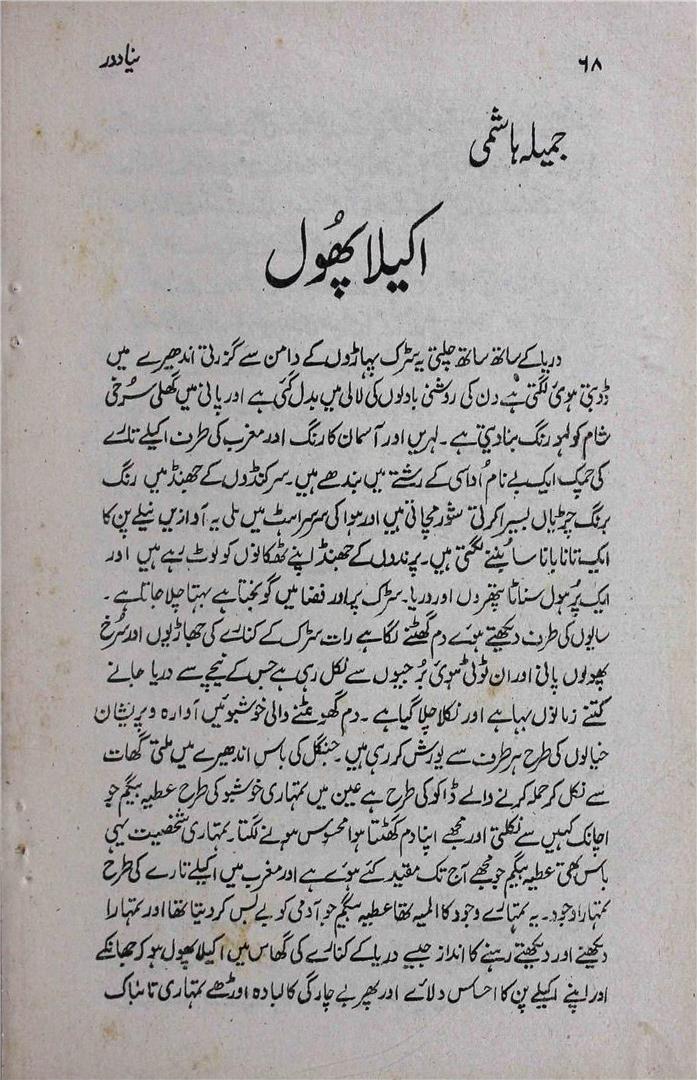 ۶۸
نیا دور
جمیلہ ہاشمی
اکیلا پھُول
دریا کے ساتھ ساتھ چلتی یہ سڑک پہاڑوں کے دامن سے گزرتی اندھیرے میں
ڈوبتی ہوئی لگتی ہے دن کی روشنی بادلوں کی لالی میں بدل گئی ہے اور پانی میں گھلی سُرخی
شام کو لہو رنگ بنا دیتی ہے۔ لہریں اور آسمان کا رنگ اور مغرب کی طرف اکیلے تارے
کی چمک ایک بے نام اُداسی کے رشتے میں بندھے ہیں۔ سرکنڈوں کے جھنڈ میں رنگ
برنگ چڑیاں بسیرا کرتی شور مچاتی ہیں اور ہوا کی سرسراہٹ میں ملی یہ آوازیں نیلے پن کا
ایک تانا بانا سا بُننے لگتی ہیں۔ پرندوں کے جھنڈ اپنے ٹھکانوں کو لوٹ رہے ہیں اور
ایک پُر ہول سناٹا پتھروں اور دریا۔ سڑک پر اور فضا میں گونجتا ہے بہتا چلا جاتا ہے۔
سایوں کی طرف دیکھتے ہوئے دم گھٹنے لگا ہے رات سڑک کے کنارے کی جھاڑیوں اور سُرخ
پھولوں پانی اور ان ٹوٹی ہوئی بُرجیوں سے نکل رہی ہے جس کے نیچے سے دریا جانے
کتنے زمانوں بہا ہے اور نکلا چلا گیا ہے۔ دم گھونٹنے والی خوشبوئیں آوارہ و پریشان
خیالوں کی طرح ہر طرف سے یورش کر رہی ہیں۔ جنگل کی باس اندھیرے میں ملتی گھات
سے نکل کر حملہ کرنے والے ڈاکو کی طرح ہے عین میں تمہاری خوشبو کی طرح عطیہ بیگم جو
اچانک کہیں سے نکلتی اور مجھے اپنا دم گھٹتا ہوا محسوس ہونے لگتا۔ تمہاری شخصیت یہی
باس تھی عطیہ بیگم جو مجھے آج تک مقید کئے ہوئے ہے اور مغرب میں اکیلے تارے کی طرح
تمہارا وجود۔ یہ تمہارے وجود کا المیہ تھا عطیہ بیگم جو آدمی کو بے بس کر دیتا تھا اور تمہارا
دیکھنے اور دیکھتے رہنے کا انداز جیسے دریا کے کنارے کی گھاس میں اکیلا پھول ہو کر جھانکے
اور اپنے اکیلے پن کا احساس دلائے اور پھر بے چارگی کا لبادہ اوڑھے تمہاری تابناک